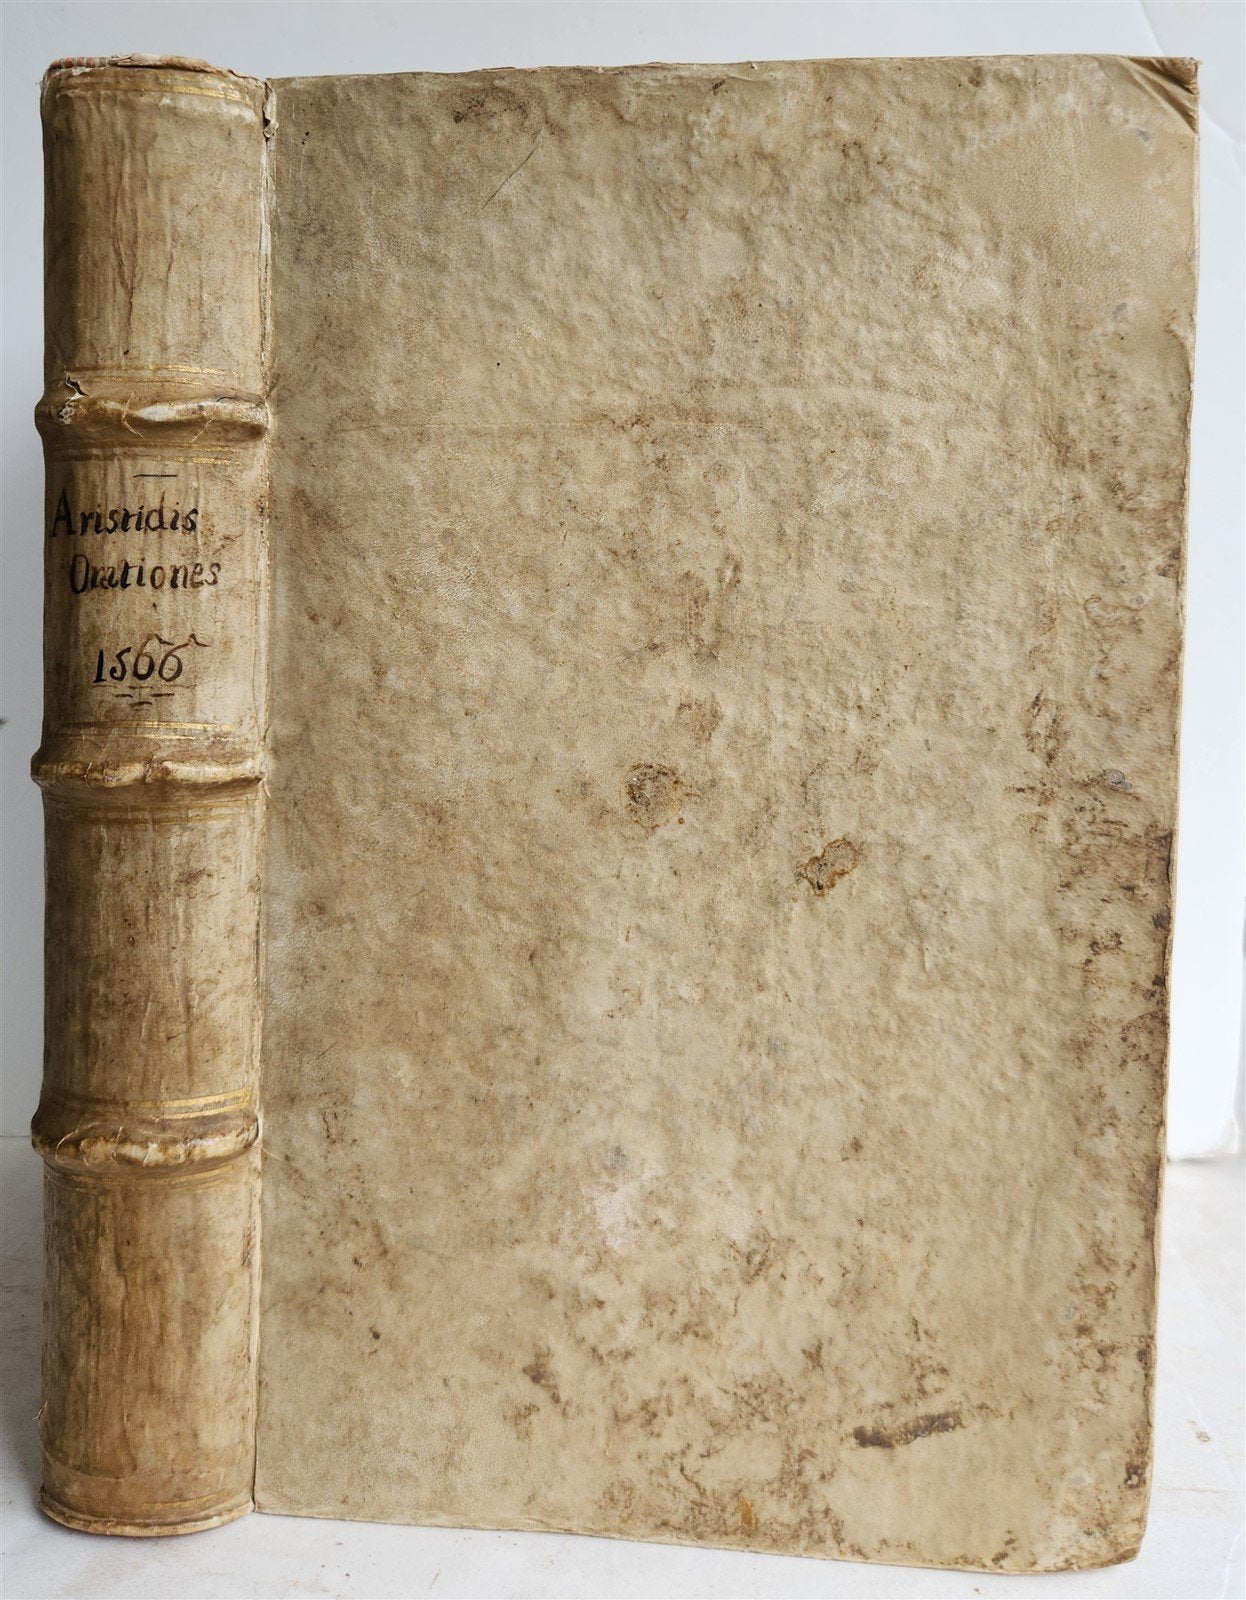 Aristidis
Orationes
1566